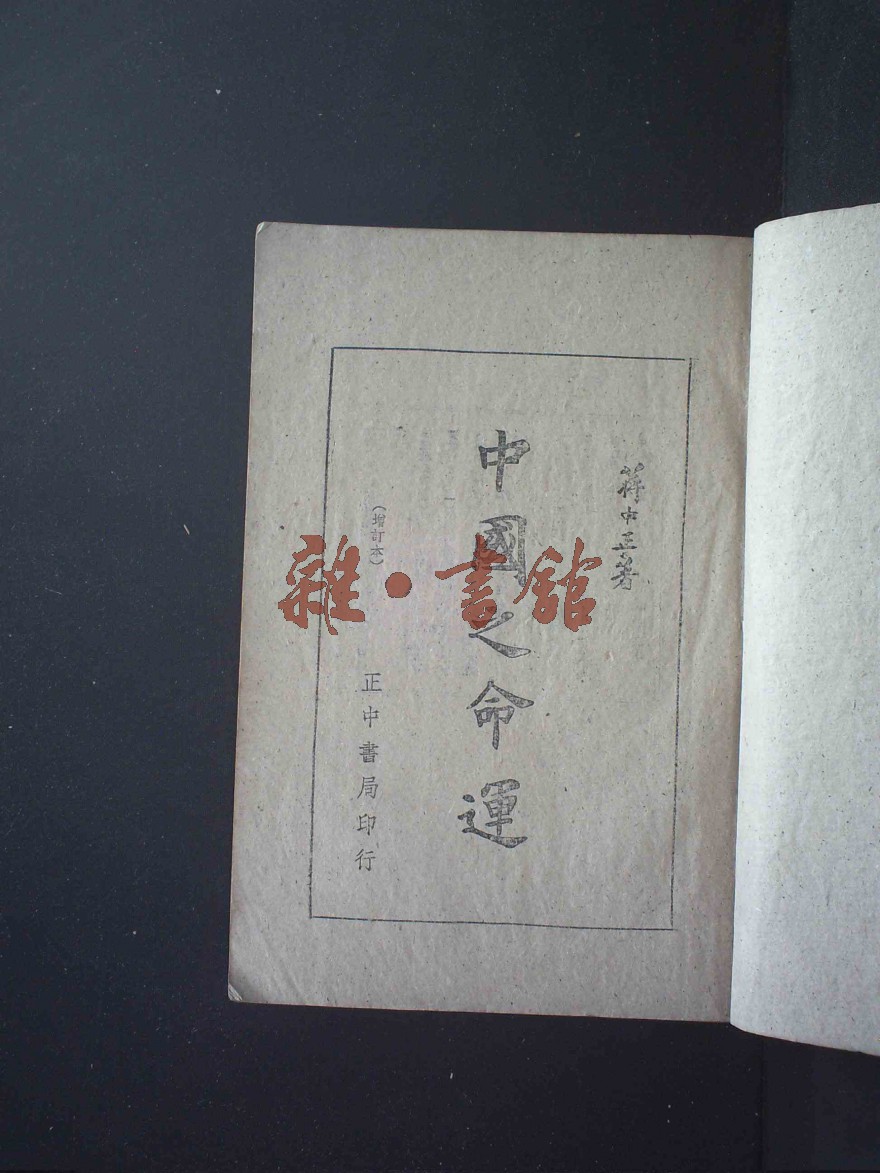 蔣中正著
中國之命運
(增訂本)
正中書局印行
雜·書館